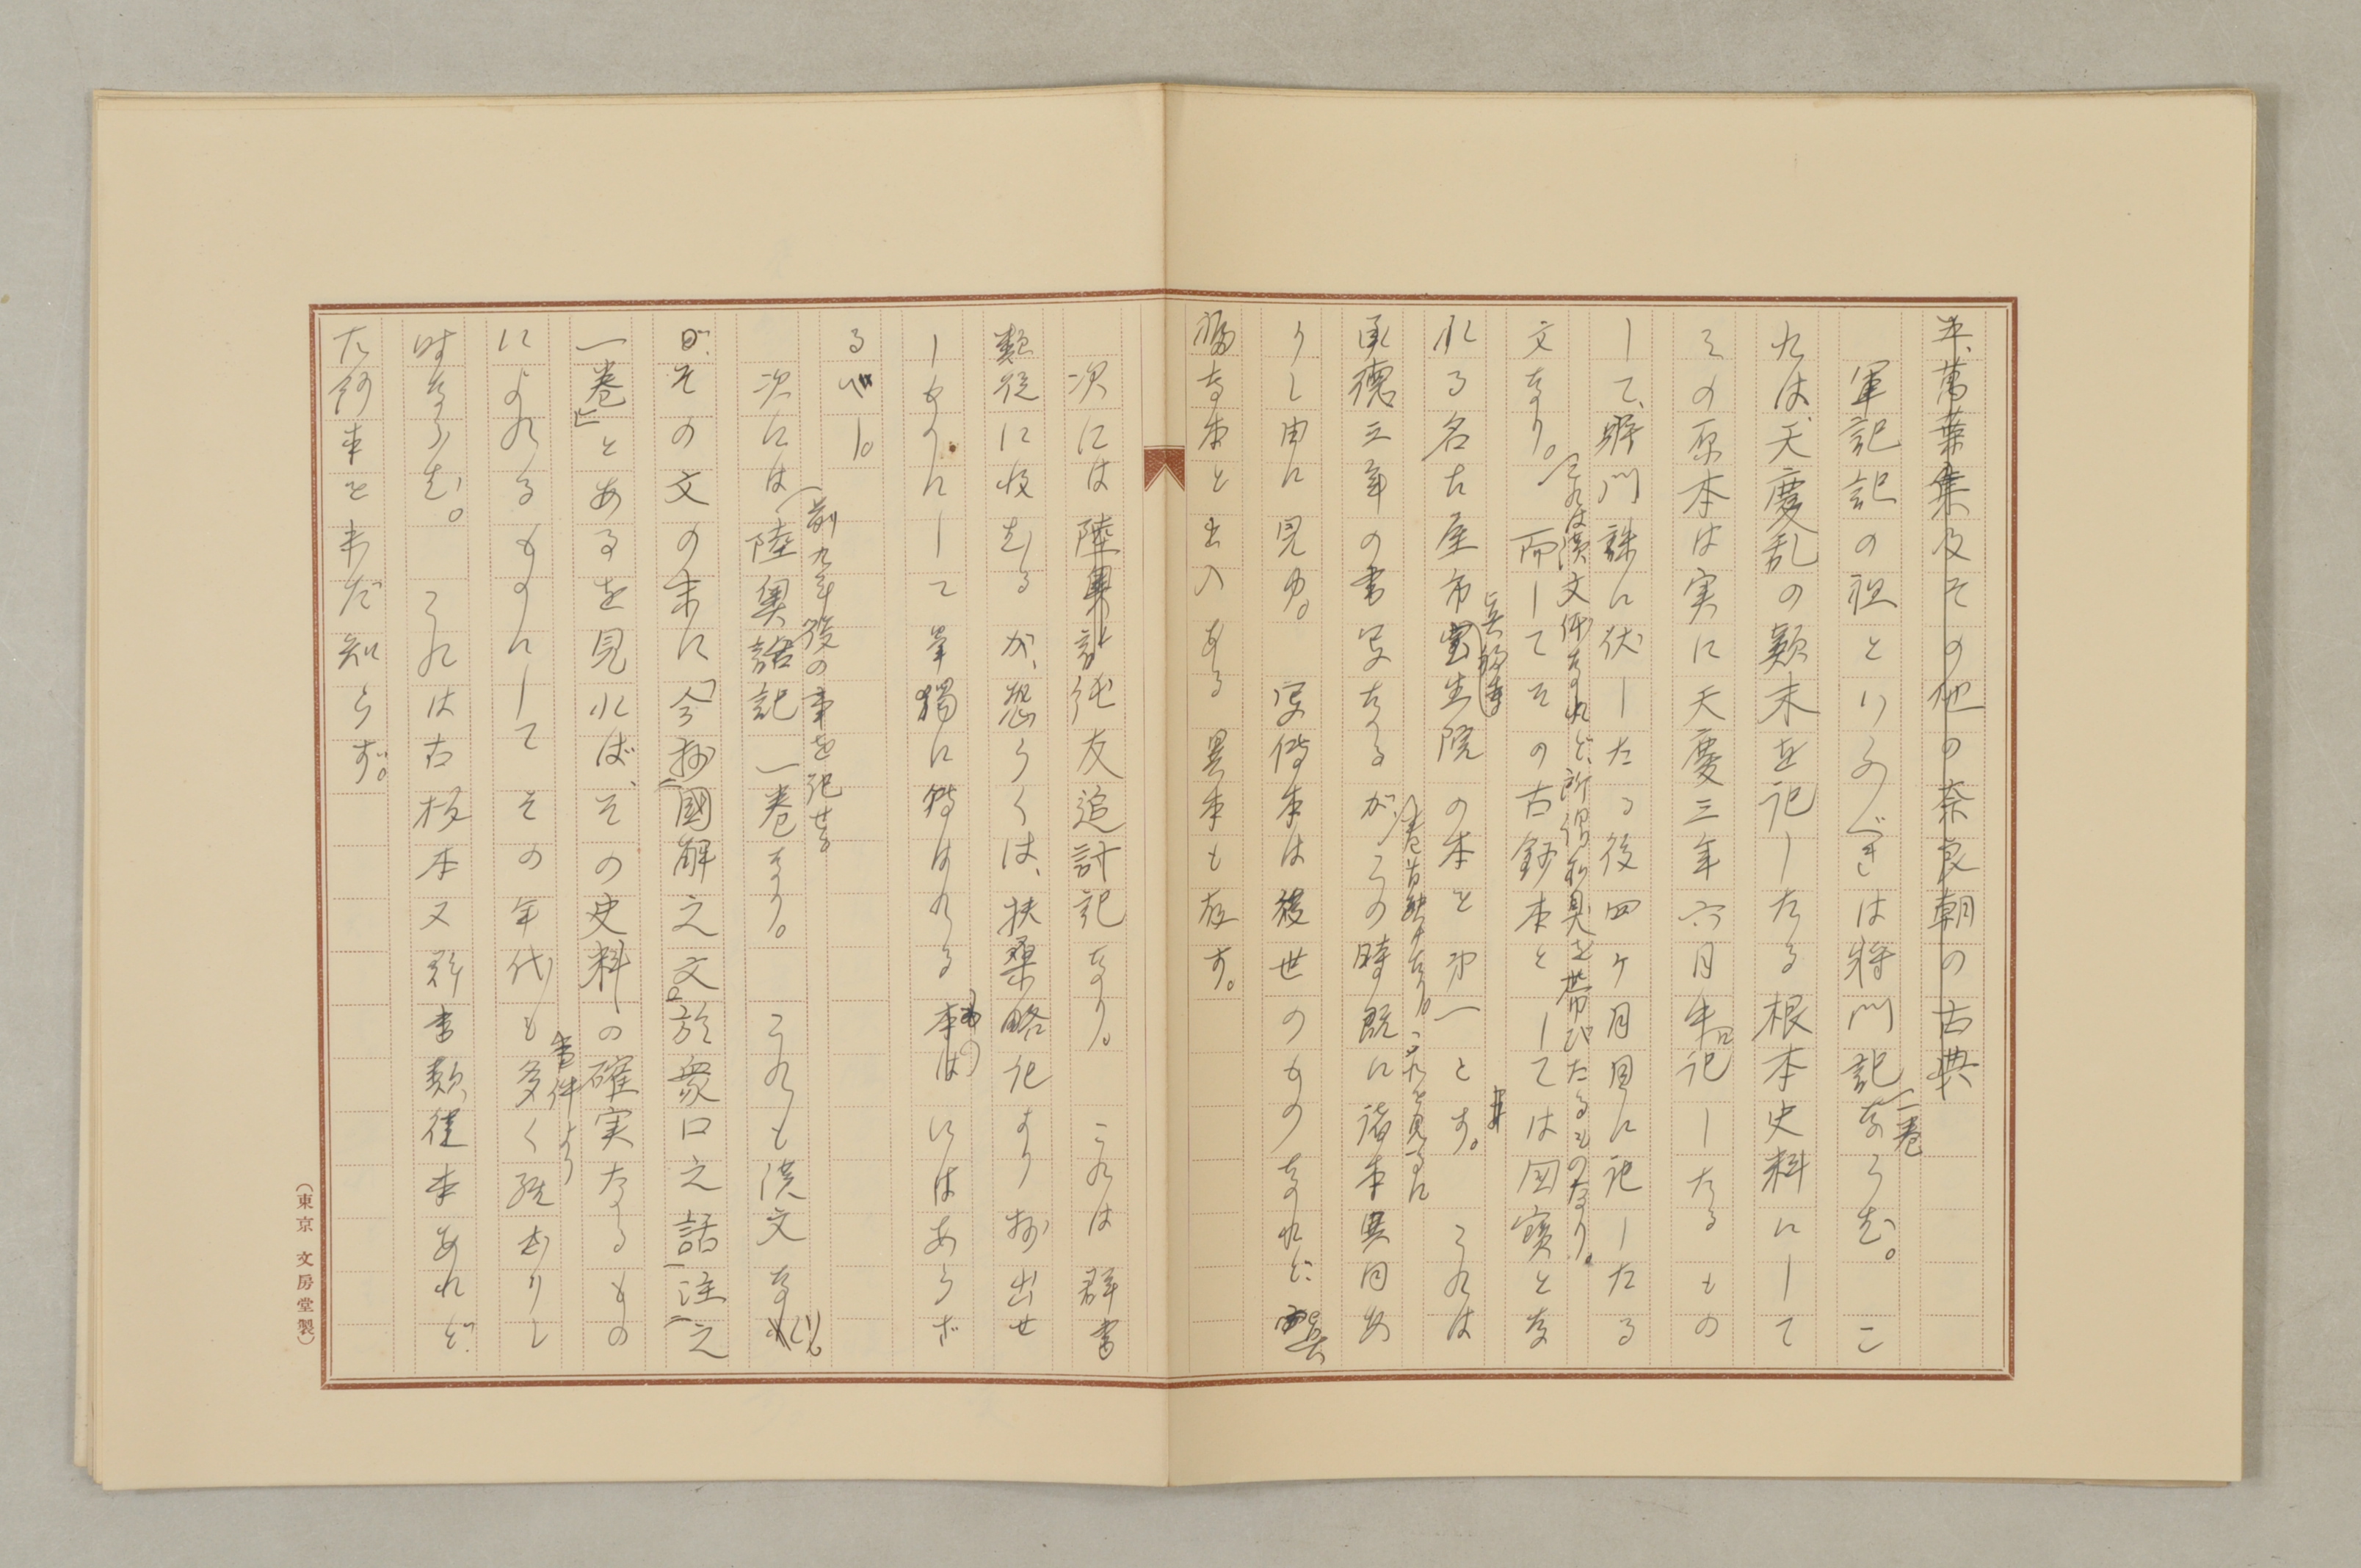 五、萬葉集及その他の奈良朝の古典
軍記記の祖といふべきは将門記一巻ならむ。こ
れは、天慶乱の顛末を記したる根本史料にして
その原本は実に天慶三年六月中記したるもの
して、将門誅に伏したる後四ヶ月目に記したる
文なり。(これは漢文体なれど、所謂和臭を帯びたるものなり。
而してその古鈔本としては国寶とな
れる名古屋市宝生院真福寺の本を第一とす。これは
承徳三年の書写なるが、(巻首缺けたり。これを見るに
この時既に諸本異同あ
りし由に見ゆ。写傳本は後世のものなれど、
福寺本と出入ある異本も存す。
次には陸奥純友追討記なり。これは群書
類従に収むるが、恐らくは、扶桑略記より抄出せ
しものにして単獨に特はれるものにはあらざ
るべし。
次には(前九年役の事を記せる
陸奥話記一巻なり。これも漢文なれ
ど、その文の末に「今抄國解之文、於衆口之話、注之
一巻」とあるを見れば、その史料の確実なるもの
によれるものにしてその年代も事件より多く経ざりし
時ならむ。これは古板本又群書類従本あれど
た鈔本を未だ知らず。
(東京 文房堂製)